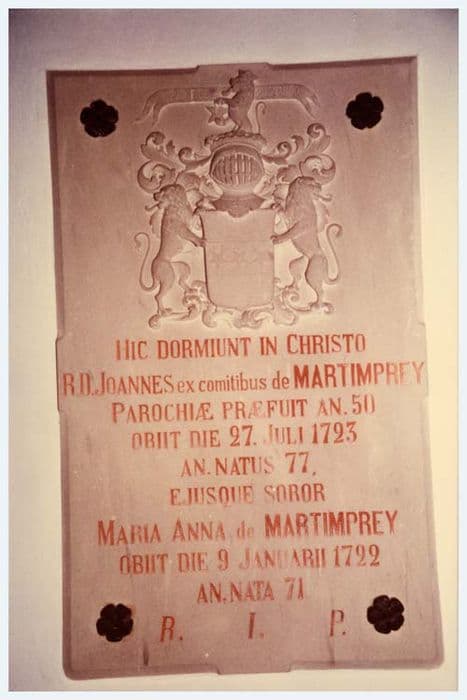 HIC DORMIUNT IN CHRISTO
R.D. JOANNES ex comitibus de MARTIMPREY
PAROCHIÆ PRÆFUIT AN. 50
OBIIT DIE 27. JULI 1723
AN. NATUS 77,
EJUSQUE SOROR
MARIA ANNA de MARTIMPREY
OBIIT DIE 9 JANUARII 1722
AN. NATA 71
R. I. P.